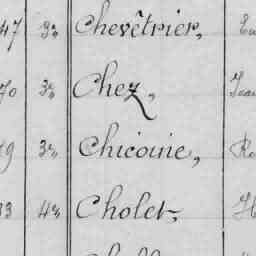 47 3e Chevêtrier,
70 3e Chez,
3e Chicoine,
33 4e Cholet,